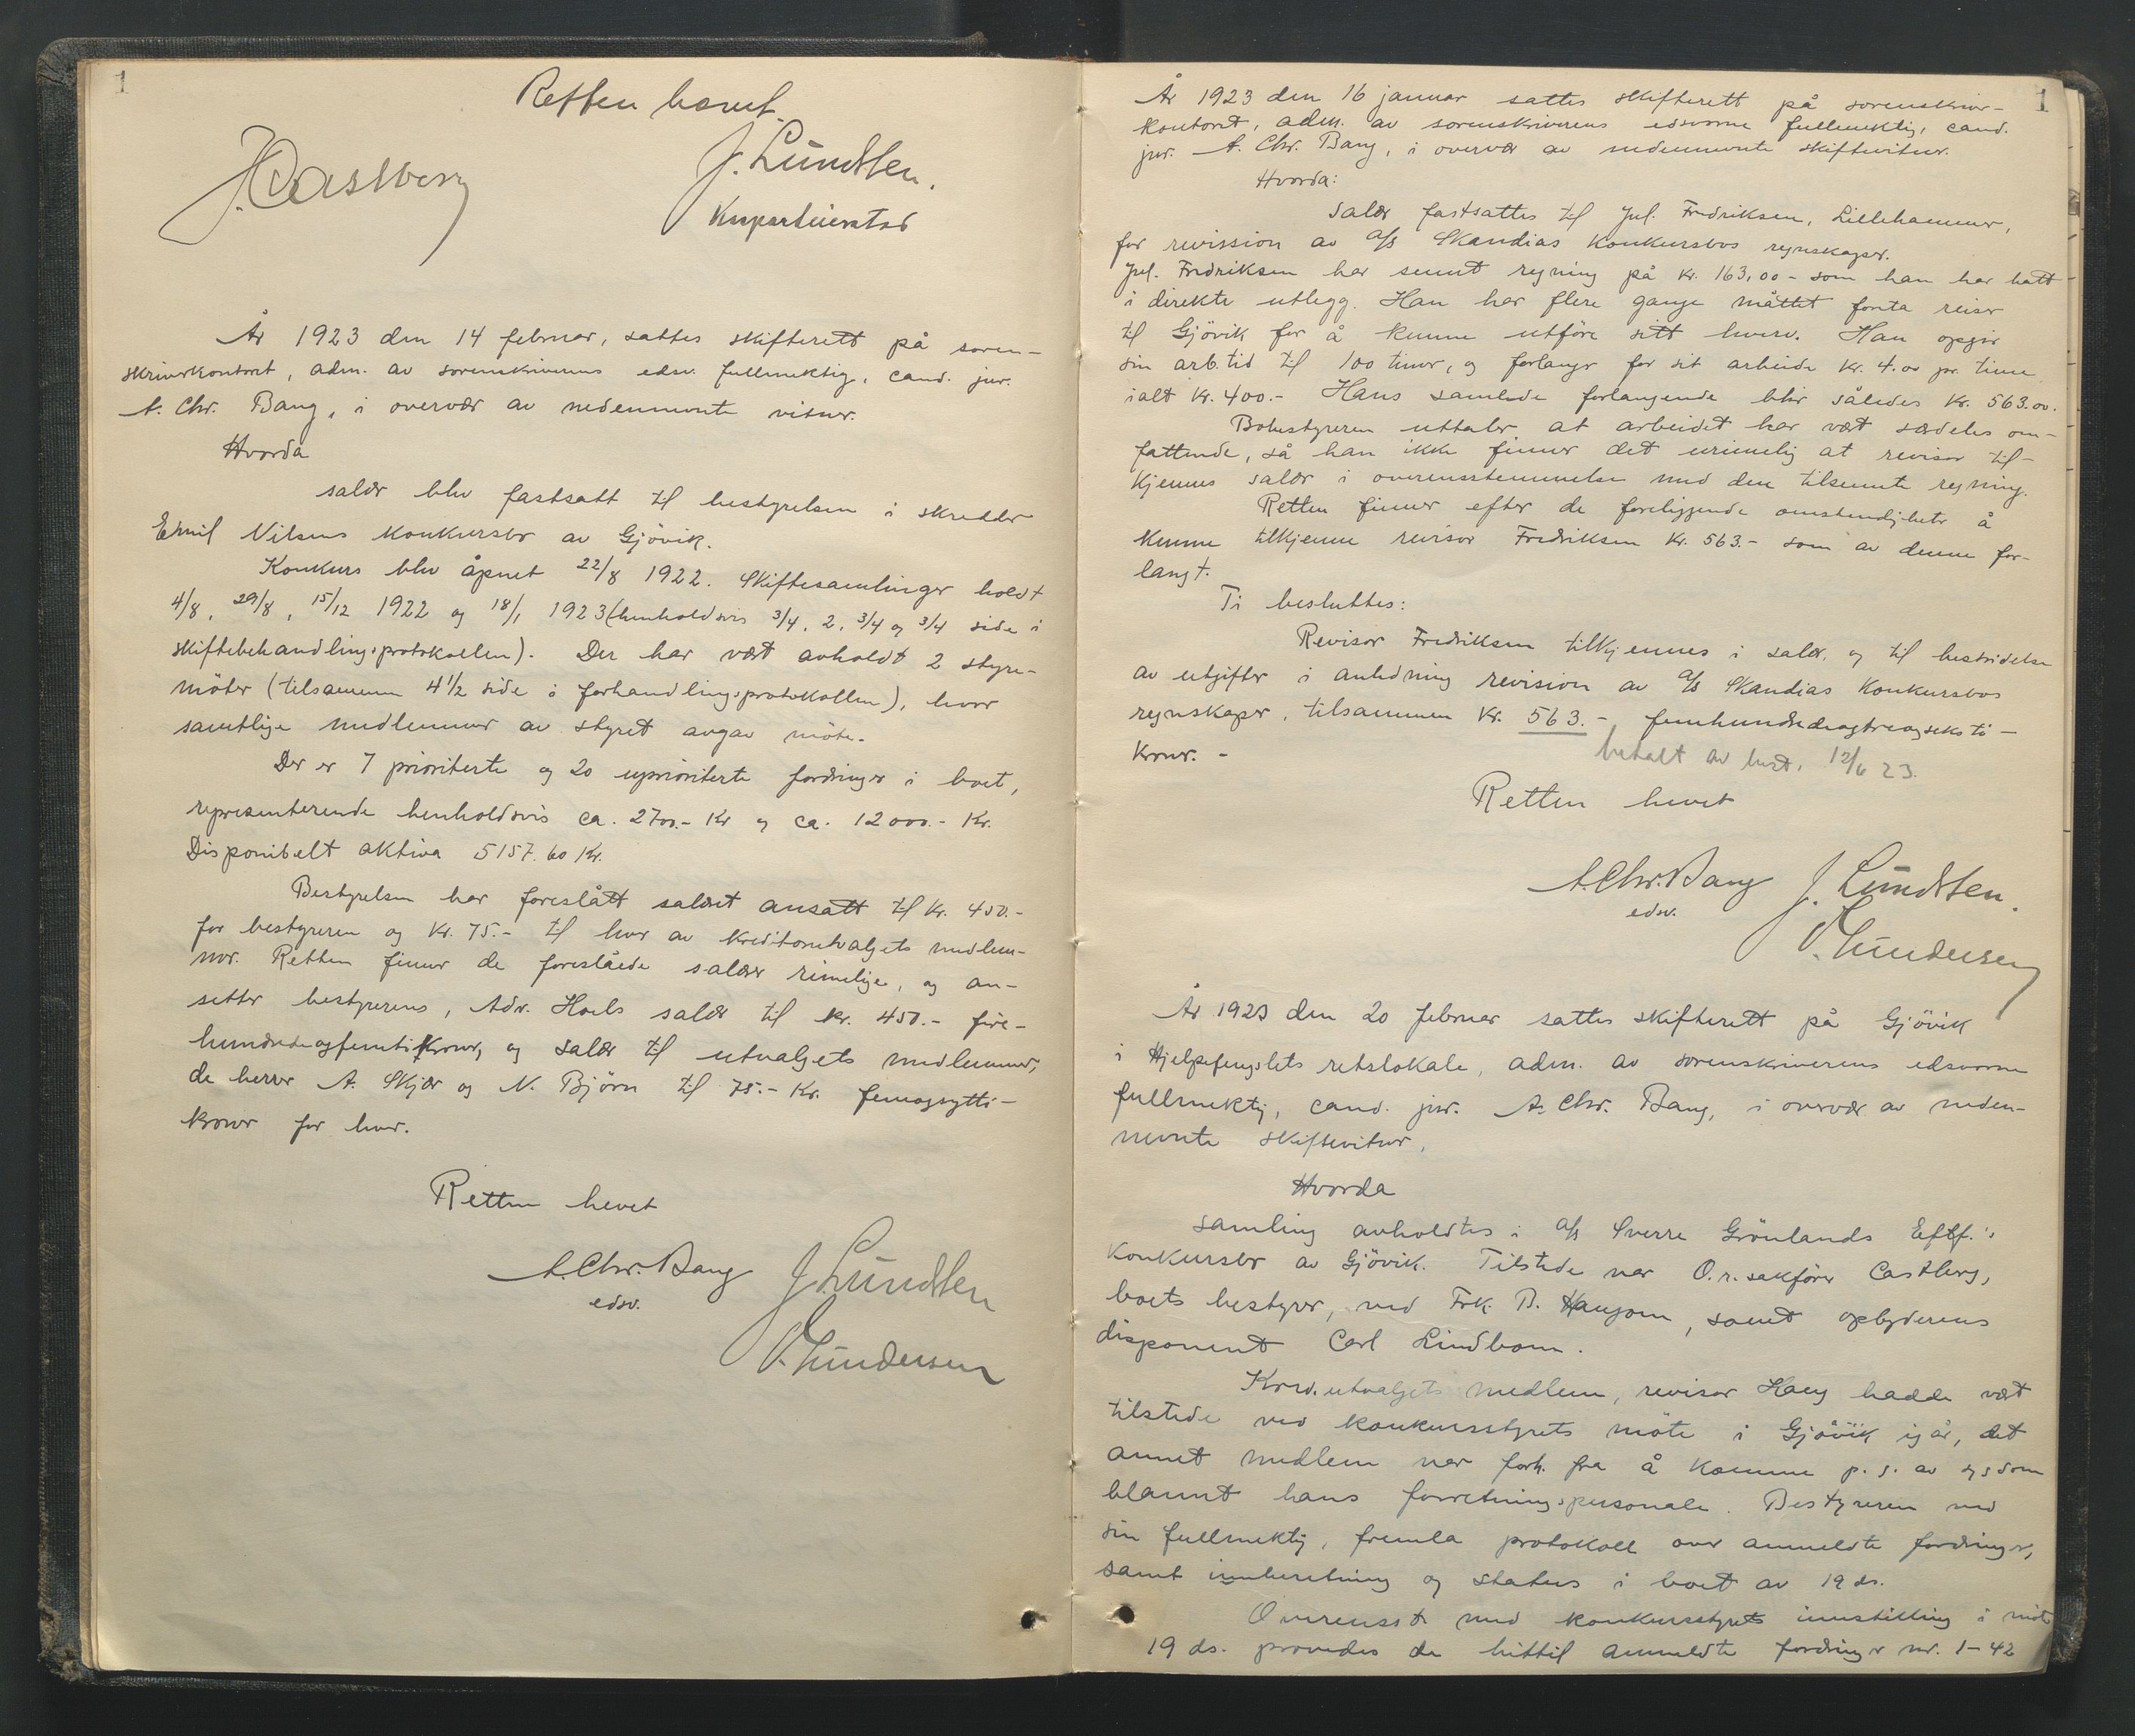 1
Retten hævet.
J. Castberg J. Lundsten.
År 1923 den 14 februar, sattes skifterett på soren-
skriverkontoret, adm. av sorenskriverens edsv. fullmektig, cand. jur.
A. Chr. Bang, i overvær av nedennevnte vitner.
Hvorda
salær blev fastsatt til bestyrelsen i skredder
Emil Nilsens konkursbo av Gjövik.
Konkurs blev åpnet 22/8 1922. Skiftesamlinger holdt
4/8, 29/8, 15/12 1922 og 18/1 1923 (henholdsvis 3/4, 2, 3/4 og 3/4 side i
skiftebehandlingsprotokollen). Der har vært avholdt 2 styre-
möter (tilsammen 4 1/2 side i forhandlingsprotokollen), hvor
samtlige medlemmer av styret avgav möte.
Der er 7 prioriterte og 20 uprioriterte fordringer i boet,
representerende henholdsvis ca. 2700.- Kr og ca. 12000.- Kr.
Disponibelt aktiva 5157.60 Kr.
Bestyrelsen har foreslått salæret ansatt til Kr. 450.-
for bestyreren og Kr. 75.- til hver av kreditorutvalgets medlem-
mer. Retten finner de foreslåede salærer rimelige, og an-
setter bestyrerens, Adv. Hoels salær til kr. 450.- fire-
hundredeogfemti kroner, og salær til utvalgets medlemmer,
de herrer A. Skjær og N. Björn til 75.- Kr. femogsytti-
kroner for hver.
Retten hevet
A. Chr. Bang J. Lundsten
edsv.
O. Gundersen
1
År 1923 den 16 januar sattes skifterett på sorenskriver-
kontoret, adm. av sorenskriverens edsvorne fullmektig, cand.
jur. A. Chr. Bang, i overvær av nedennevnte skiftevitner.
Hvorda:
salær fastsattes til Jul. Fredriksen, Lillehammer,
for revission av A/S Skandias konkursbos regnskaper.
Jul. Fredriksen har sennt regning på kr. 163,00 - som han har hatt
i direkte utlegg. Han har flere gange måttet foreta reiser
til Gjövik for å kunne utföre sitt hverv. Han opgir
sin arb.tid til 100 timer, og forlanger for sit arbeide kr. 4.00 pr. time
ialt kr. 400.- Hans samlede forlangende blir således kr. 563.00.
Bobestyreren uttaler at arbeidet har vært særdeles om-
fattende, så han ikke finner det urimelig at revisor til-
kjennes salær i overensstemmelse med den tilsennte regning.
Retten finner efter de foreliggende omstendigheter å
kunne tilkjenne revisor Fredriksen Kr. 563.- som av denne for-
langt.
Ti besluttes:
Revisor Fredriksen tilkjennes i salær, og til bestridelse
av utgifter i anledning revision av A/S Skandias Konkursbos
regnskaper, tilsammen Kr. 563.-, femhundredeogtreogseksti-
Kroner. -
betalt av best. 12/6 23.
Retten hevet
A. Chr. Bang J. Lundsten.
edsv.
O. Gundersen
År 1923 den 20 februar sattes skifterett på Gjövik
i Hjelpefengslets retslokale, adm. av sorenskriverens edsvorne
fullmektig, cand. jur. A. Chr. Bang, i overvær av neden-
nevnte skiftevitner,
Hvorda
samling avholdtes i A/S Sverre Grönlands Eftf.'s
konkursbo av Gjövik. Tilstede var O.r.sakförer Castberg,
boets bestyrer, ved Frk. B. Haugom, samt opbyderens
disponent Carl Lindbom.
Kred.utvalgets medlem, revisor Haug hadde vært
tilstede ved konkursstyrets möte i Gjövik igår, det
annet medlem var forh. fra å komme p.g. av sygdom
blannt hans forretningspersonale. Bestyreren ved
sin fullmektig, fremla protokoll over anmeldte fordringer,
samt innberetning og status i boet av 19 ds.
Overensst. med konkursstyrets innstilling i möte
19 ds. prøvedes de hittil anmeldte fordringer nr. 1-42